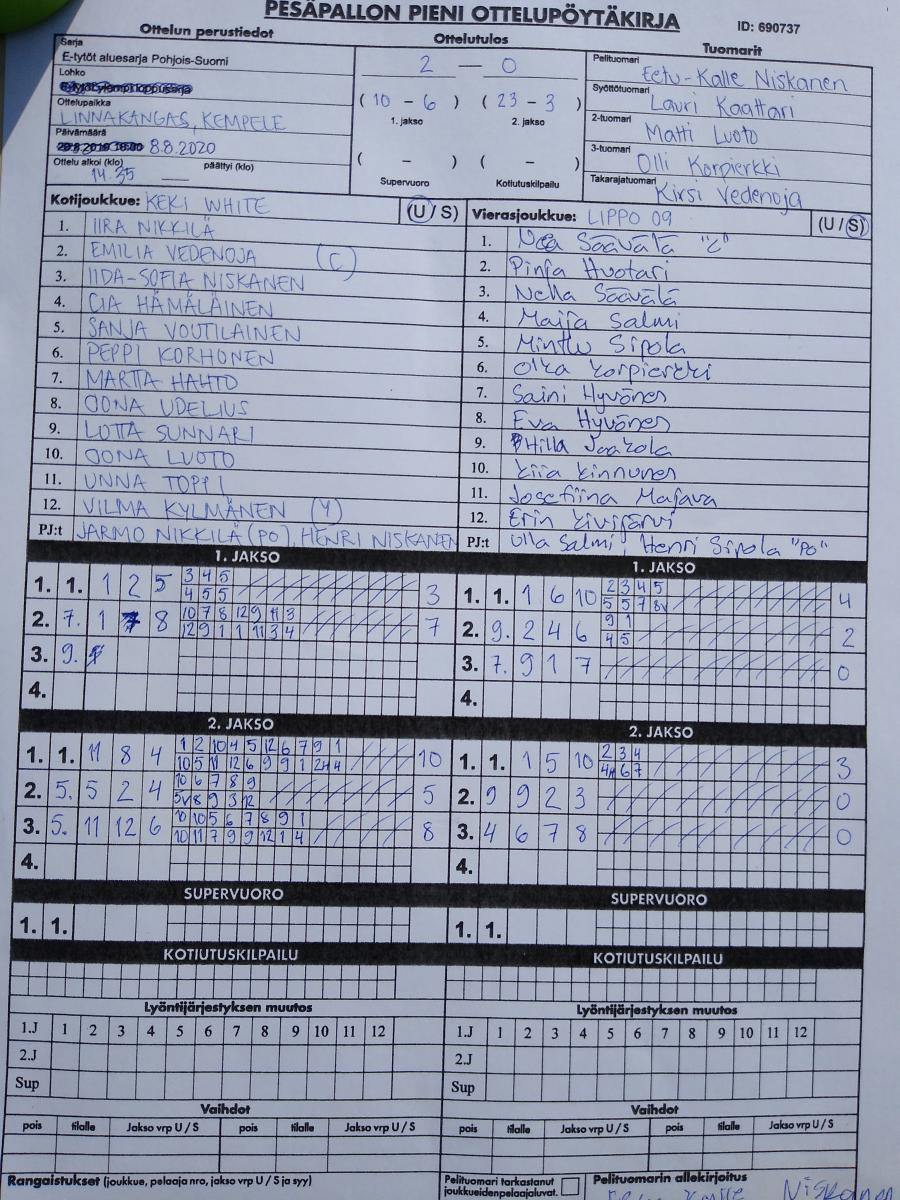 PESÄPALLON PIENI OTTELUPÖYTÄKIRJA
ID: 690737
Ottelun perustiedot
Ottelutulos
Tuomarit
Sarja
E-tytöt aluesarja Pohjois-Suomi
Lohko
Ottelupaikka
LINNAKANGAS, KEMPELE
Päivämäärä
8.8.2020
Ottelu alkoi (klo) päättyi (klo)
14.35
2 — 0
( 10 – 6 ) ( 23 – 3 )
1. jakso 2. jakso
( – ) ( – )
Supervuoro Kotiutuskilpailu
Pelituomari
Eetu-Kalle Niskanen
Syöttötuomari
Lauri Kaattari
2-tuomari
Matti Luoto
3-tuomari
Olli Korpierkki
Takarajatuomari
Kirsi Vedenoja
Kotijoukkue: KEKI WHITE (U / S)
1. IIRA NIKKILÄ
2. EMILIA VEDENOJA (C)
3. IIDA-SOFIA NISKANEN
4. CIA HÄMÄLÄINEN
5. SANJA VOUTILAINEN
6. PEPPI KORHONEN
7. MARTTA HAHTO
8. OONA UDELIUS
9. LOTTA SUNNARI
10. OONA LUOTO
11. UNNA TOPPI
12. VILMA KYLMÄNEN (Y)
PJ:t JARMO NIKKILÄ (PO), HENRI NISKANEN
Vierasjoukkue: LIPPO 09 (U / S)
1. Nea Säävälä "C"
2. Pinja Huotari
3. Nella Säävälä
4. Maija Salmi
5. Minttu Sipola
6. Olka Korpierkki
7. Saini Hyvönen
8. Eva Hyvönen
9. Hilla Jaakola
10. Kiia Kinnunen
11. Josefiina Majava
12. Erin Kivijärvi
PJ:t Ulla Salmi, Henri Sipola "PO"
1. JAKSO
1. 1. 1 2 5 3 4 5 3
4 5 5
2. 7. 1 8 10 7 8 12 9 11 3 7
12 9 1 1 11 3 4
3. 9.
4.
1. JAKSO
1. 1. 1 6 10 2 3 4 5 4
5 5 7 8v
2. 9. 2 4 6 9 1 2
4 5
3. 7. 9 1 7 0
4.
2. JAKSO
1. 1. 11 8 4 1 2 10 4 5 12 6 7 9 1 10
10 5 11 12 6 9 9 1 2 4
2. 5. 5 2 4 10 6 7 8 9 5
5v 8 9 3 12
3. 5. 11 12 6 10 10 5 6 7 8 9 1 8
10 11 7 9 9 12 1 4
4.
2. JAKSO
1. 1. 1 5 10 2 3 4 3
4 6 7
2. 9 9 2 3 0
3. 4 6 7 8 0
4.
SUPERVUORO
1. 1.
SUPERVUORO
1. 1.
KOTIUTUSKILPAILU
KOTIUTUSKILPAILU
Lyöntijärjestyksen muutos
1.J 1 2 3 4 5 6 7 8 9 10 11 12
2.J
Sup
Lyöntijärjestyksen muutos
1.J 1 2 3 4 5 6 7 8 9 10 11 12
2.J
Sup
Vaihdot
pois tilalle Jakso vrp U / S pois tilalle Jakso vrp U / S
Vaihdot
pois tilalle Jakso vrp U / S pois tilalle Jakso vrp U / S
Rangaistukset (joukkue, pelaaja nro, jakso vrp U / S ja syy)
Pelituomari tarkastanut
joukkueidenpelaajaluvat.
Pelituomarin allekirjoitus
Niskanen